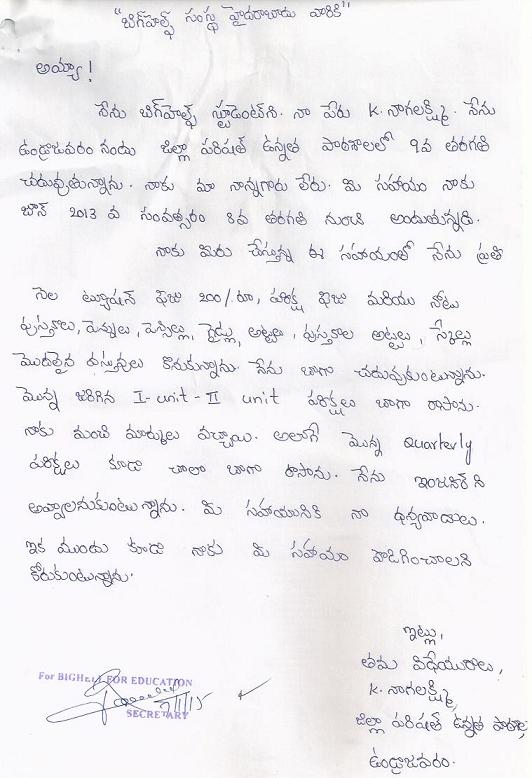 "బిగ్‌హెల్ప్ సంస్థ హైదరాబాదు వారికి"
అయ్యా!
నేను బిగ్‌హెల్ప్ స్టూడెంట్‌ని. నా పేరు K. నాగలక్ష్మి. నేను
ఉండ్రాజవరం నందు జిల్లా పరిషత్ ఉన్నత పాఠశాలలో 9వ తరగతి
చదువుతున్నాను. నాకు మా నాన్నగారు లేరు. మీ సహాయం నాకు
జూన్ 2013 వ సంవత్సరం 8వ తరగతి నుంచి అందుతున్నది.
నాకు మీరు చేస్తున్న ఈ సహాయంతో నేను ప్రతి
నెల ట్యూషన్ ఫీజు 200/.రూ, పరీక్ష ఫీజు మరియు నోటు
పుస్తకాలు, పెన్నులు, పెన్సిల్లు, రైడ్లు, అట్టలు, పుస్తకాల అట్టలు, స్కేల్లు
మొదలైన వస్తువులు కొనుకున్నాను. నేను బాగా చదువుకుంటున్నాను.
మొన్న జరిగిన I-unit-II unit పరీక్షలు బాగా రాసాను.
నాకు మంచి మార్కులు వచ్చాయి. అలాగే మొన్న quarterly
పరీక్షలు కూడా చాలా బాగా రాసాను. నేను ఇంజనీర్ ని
అవ్వాలనుకుంటున్నాను. మీ సహాయనికి నా ధన్యవాదాలు.
ఇక ముందు కూడా నాకు మీ సహాయం సాగించాలని
కోరుకుంటున్నాను.
ఇట్లు,
తమ విధేయురాలు,
K. నాగలక్ష్మి,
జిల్లా పరిషత్ ఉన్నత పాఠశాల,
ఉండ్రాజవరం.
For BIGHELP FOR EDUCATION
SECRETARY